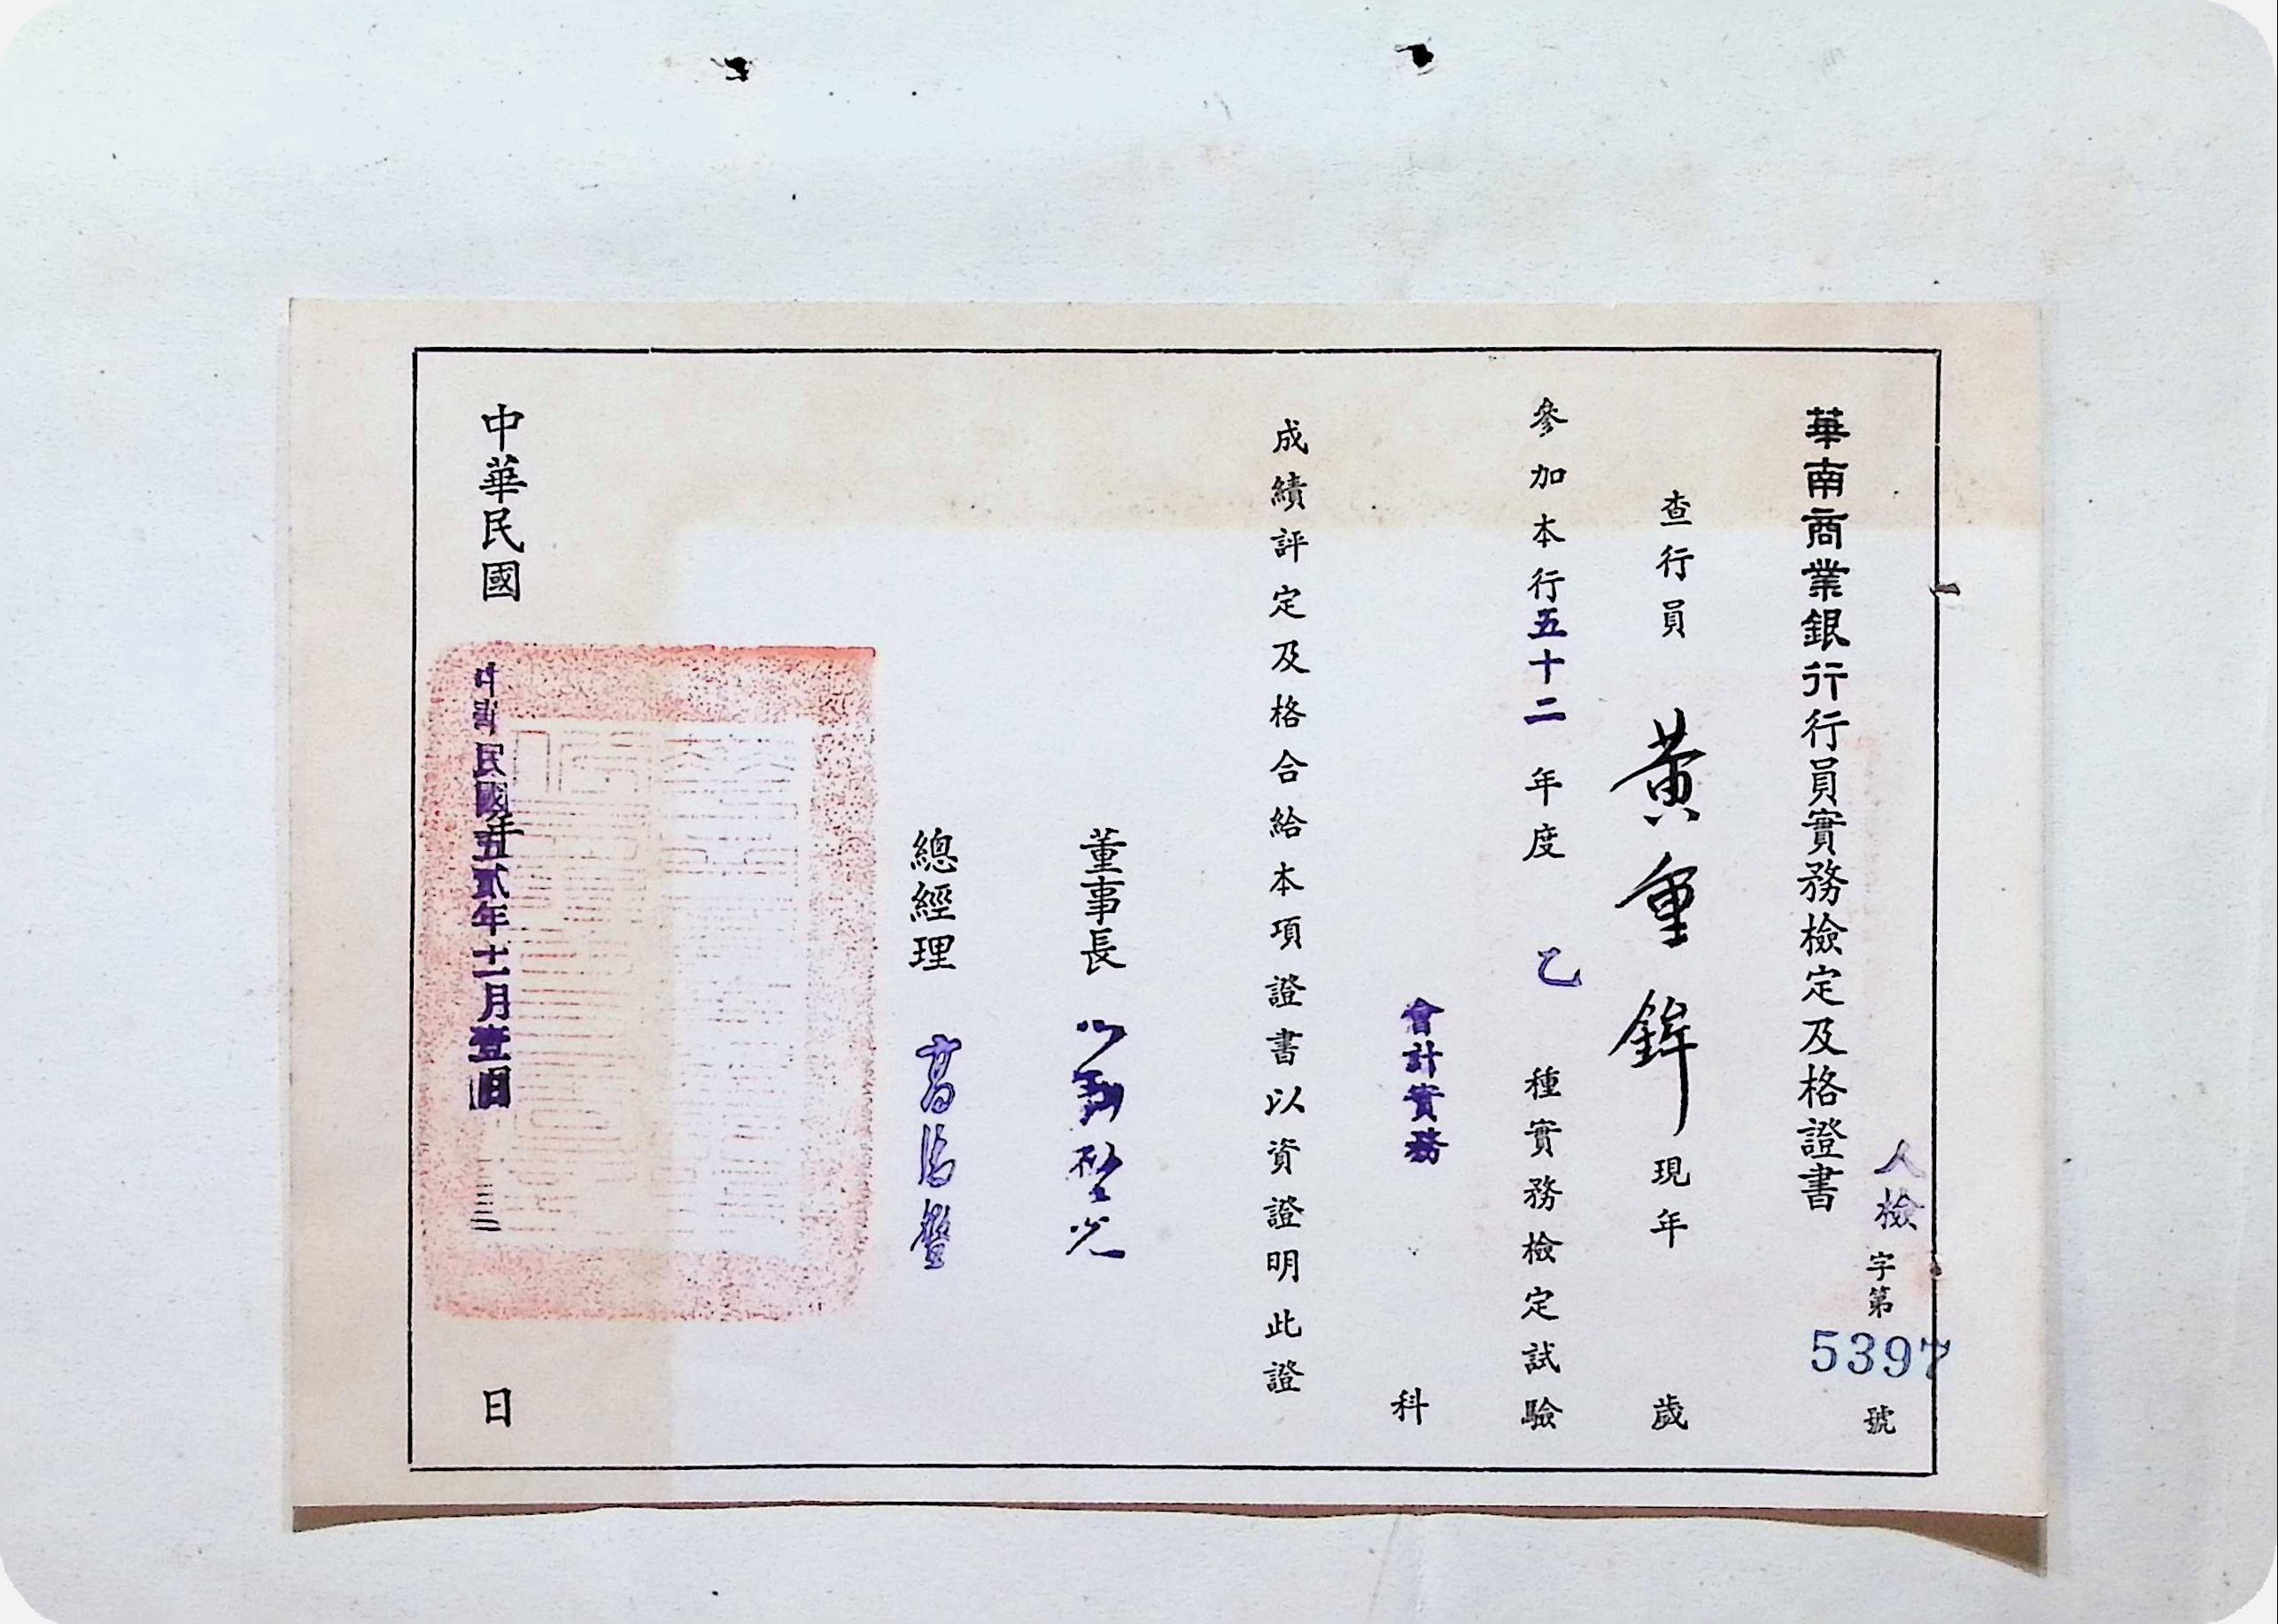 人檢字第5397號
華南商業銀行行員實務檢定及格證書
查行員 黃重鉾 現年 歲
參加本行五十二年度 乙 種實務檢定試驗
會計實務 科
成績評定及格合給本項證書以資證明此證
董事長
總經理
中華民國 年 日
中華民國五貳年十一月壹日